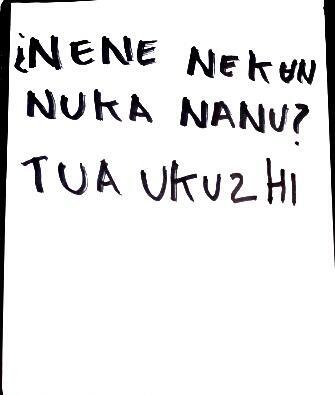 ¿NENE NEKUN
NUKA NANU?
TUA UKUZHI